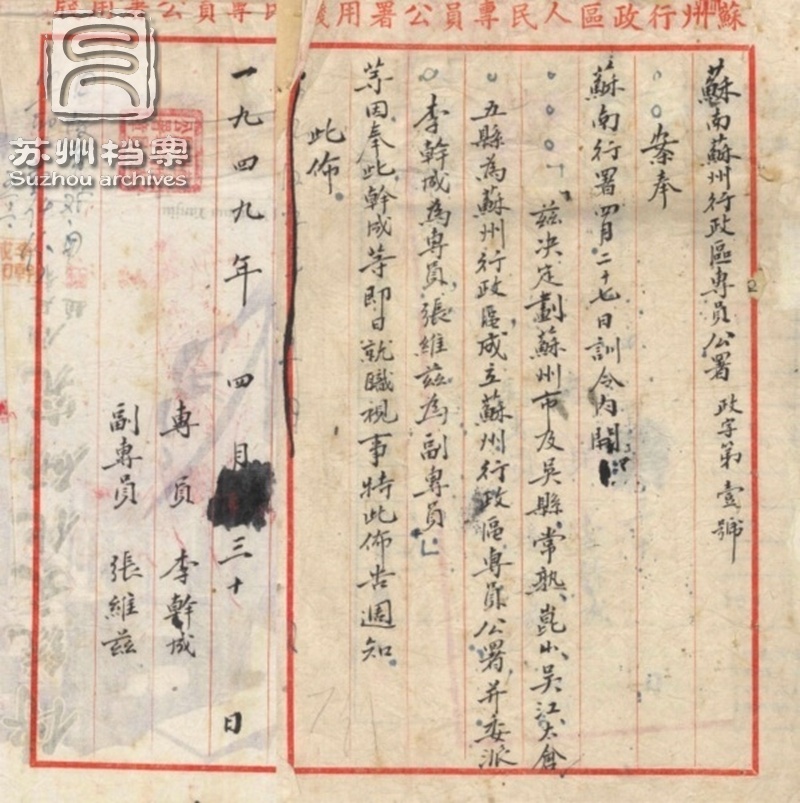 蘇州行政區人民專員公署用
蘇南蘇州行政區專員公署 政字第壹號
案奉
蘇南行署四月二十七日訓令內開
「茲决定劃蘇州市及吳縣、常熟、崑山、吳江、太倉
五縣為蘇州行政區,成立蘇州行政區專員公署,并委派
李幹成為專員,張維茲為副專員」
等因奉此,幹成等即日就職視事特此佈告週知
此佈
一九四九年四月三十日
專員 李幹成
副專員 張維茲
苏州档案
Suzhou archives